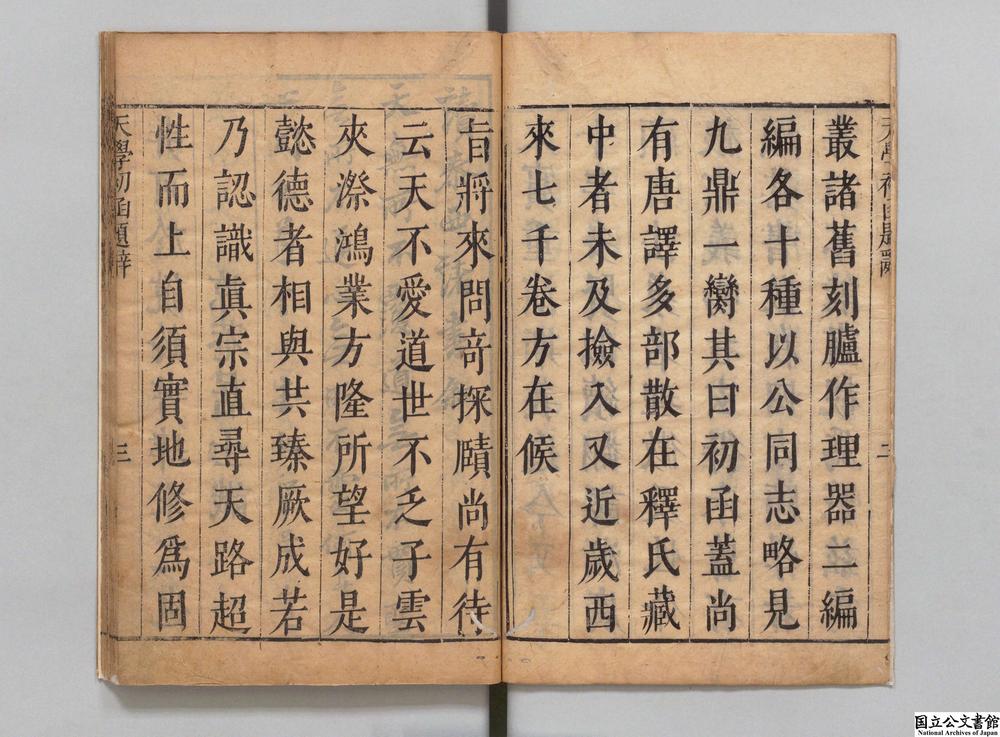 叢諸舊刻臚作理器二編
編各十種以公同志略見
九鼎一臠其曰初函蓋尚
有唐譯多部散在釋氏藏
中者未及撿入又近歲西
來七千卷方在候
旨將來問竒探賾尚有待
云天不愛道世不乏子雲
夾漈鴻業方隆所望好是
懿德者相與共臻厥成若
乃認識眞宗直尋天路超
性而上自須實地修爲固
天學初函題辭
三
国立公文書館
National Archives of Japan